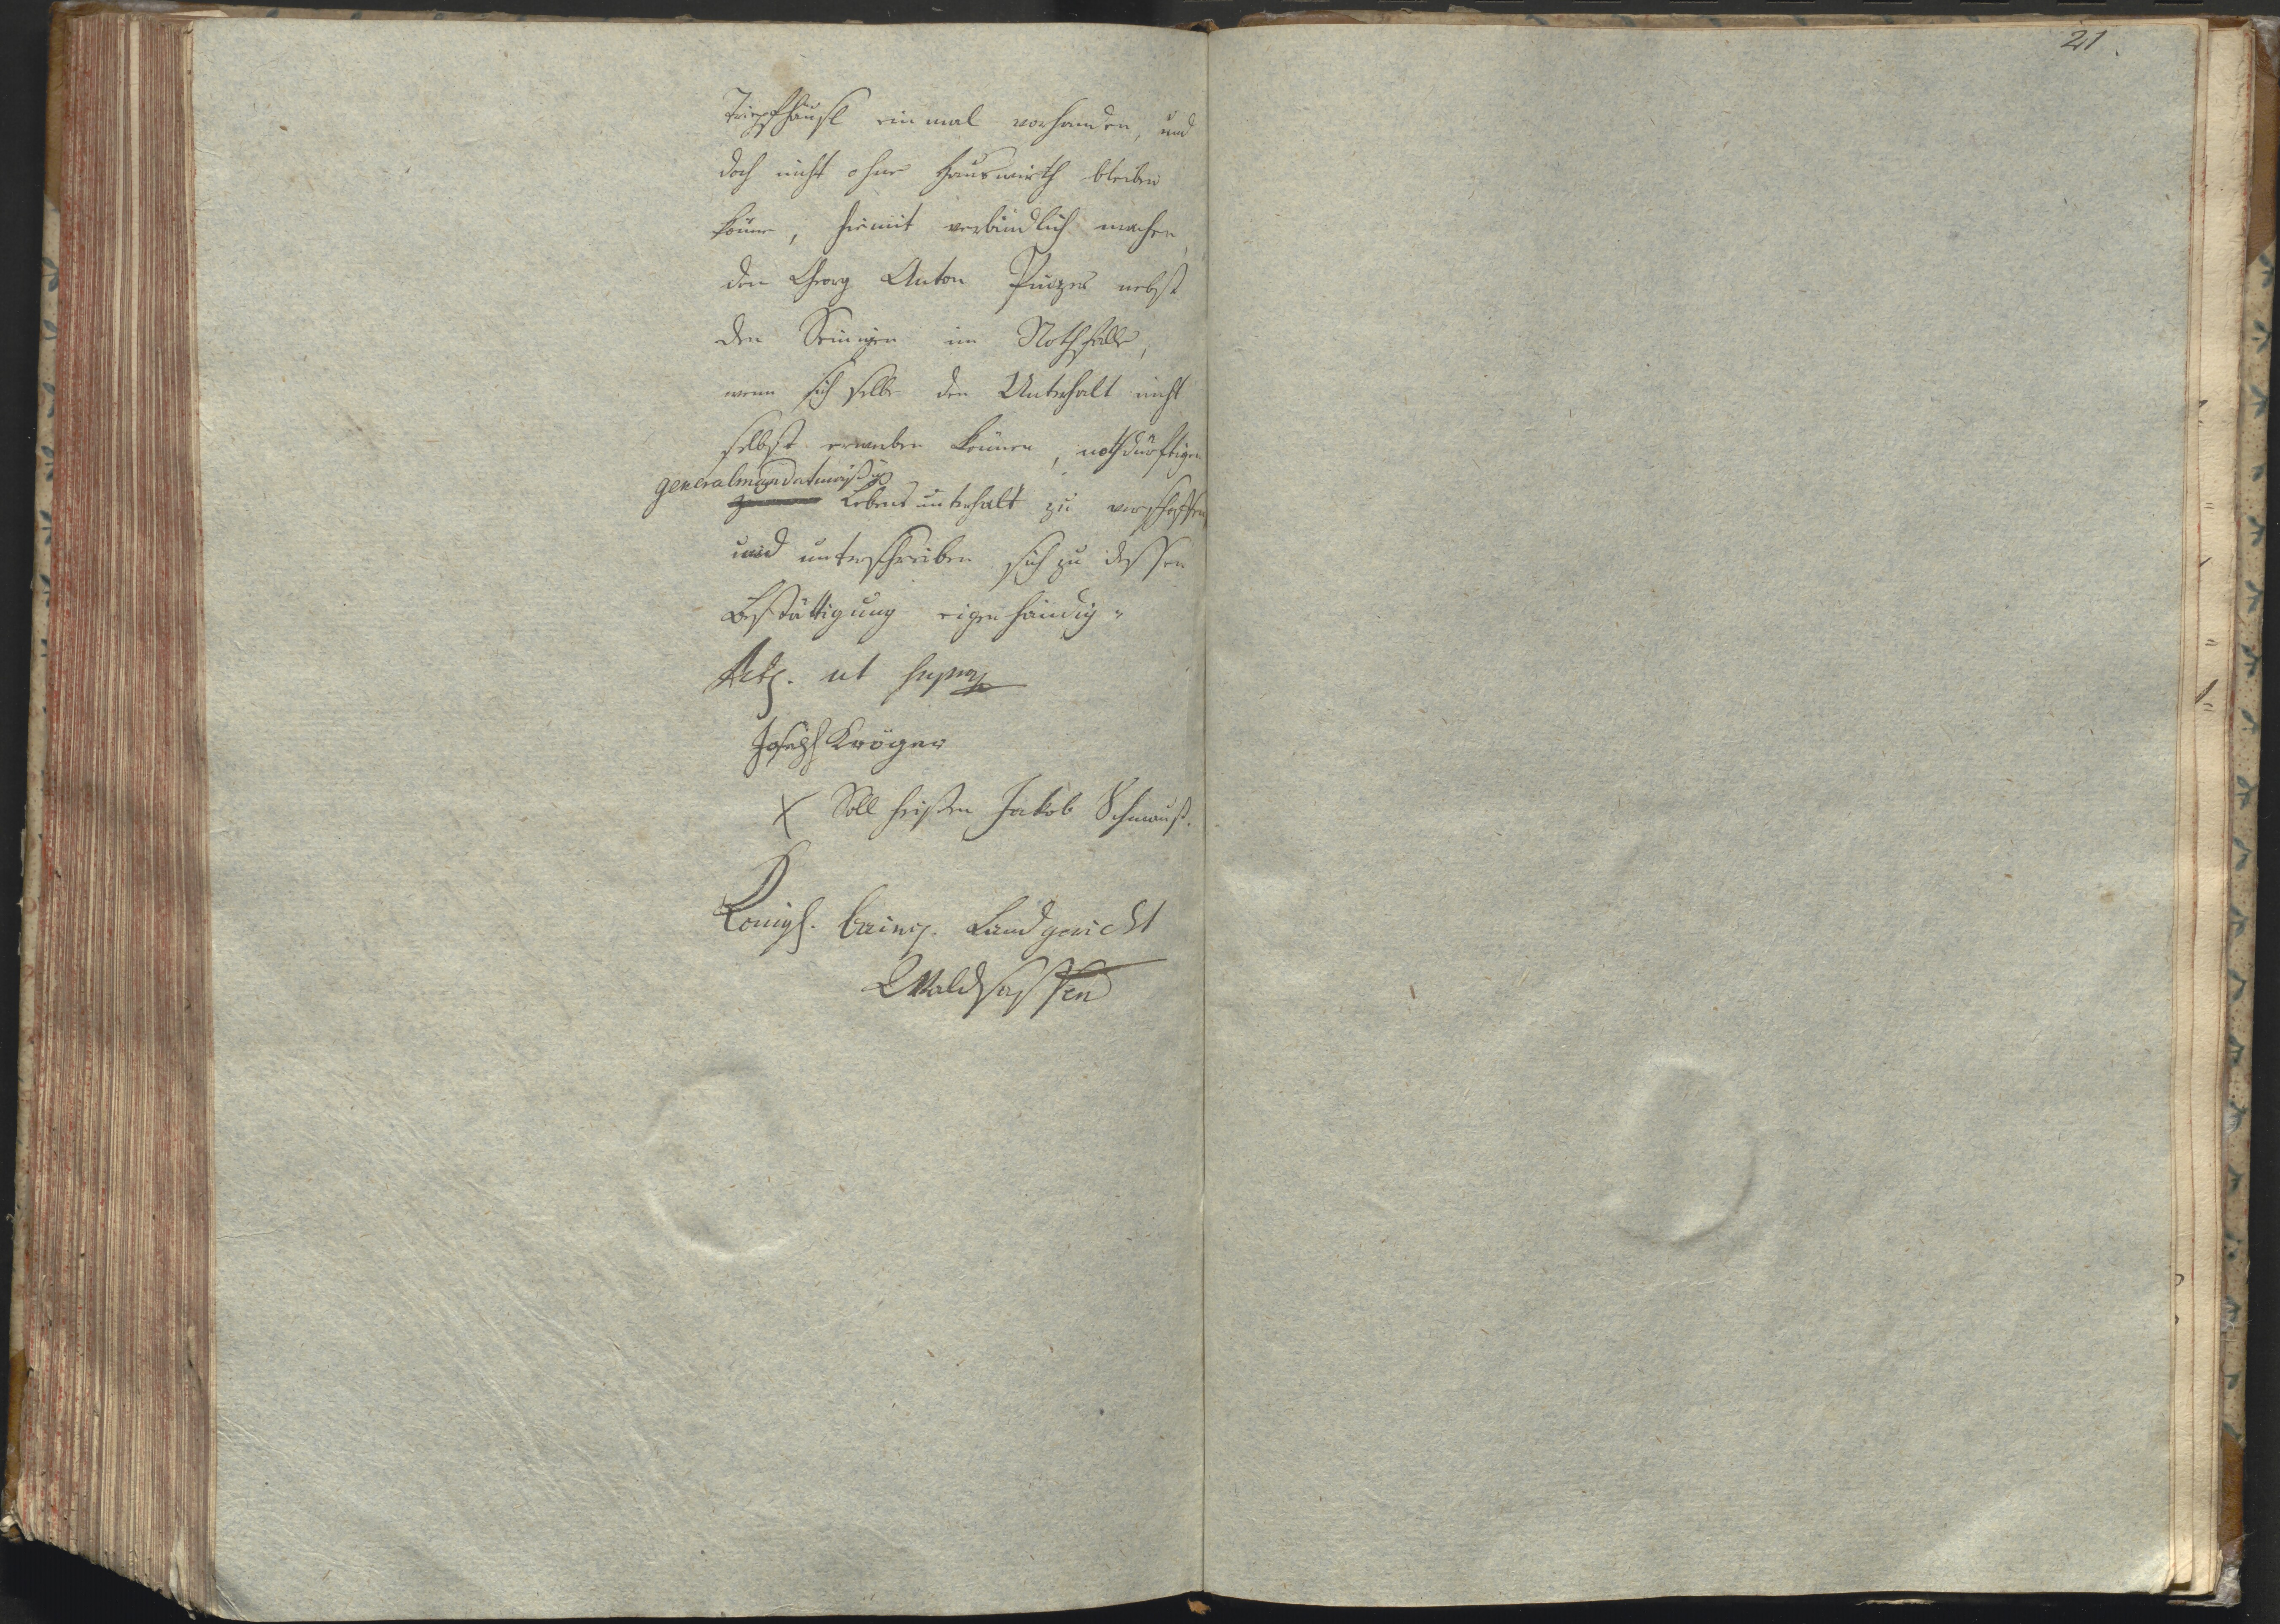 21.
Tripfhäusl einmal vorhanden, und
doch nicht ohne Hauswirth bleiben
könne, hiemit verbindlich machen,
den Georg Anton nebst
den Seinigen im Nothfalle,
wenn sich selbe den Unterhalt nicht
selbst erwerben können, nothdürftigen
generalmandatmäßig
Lebensunterhalt zu verschaffen,
und unterschreiben sich zu dessen
Bestättigung eigenhändig.
Act. ut supra
Joseph Kröger
X Soll heißen Jakob Schmauß.
Königl. baier. Landgericht
Waldsassen